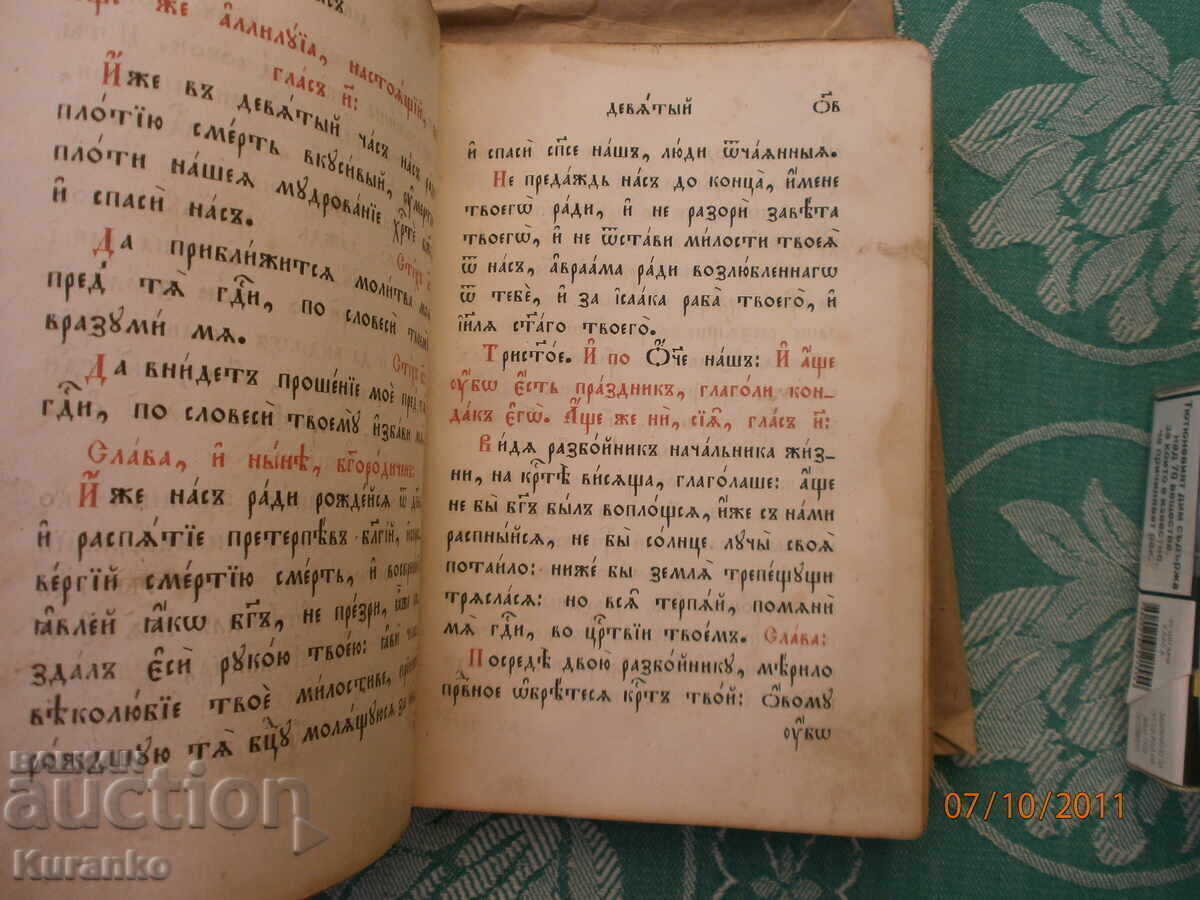 же а҆ллилꙋ́їа, настоѧ́щїй,
гла́съ и҃:
И҆́же въ девѧ́тый ча́съ на́съ ра́ди
пло́тїю сме́рть вкꙋси́вый,
пло́ти на́шеѧ мꙋдрова́нїе хрⷭ҇тѐ
и҆ спасѝ на́съ.
Да прибли́житсѧ моли́тва
пред̾ тѧ̀ гдⷭ҇и, по словесѝ
вразꙋми́ мѧ.
Да вни́детъ проше́нїе моѐ пред̾
гдⷭ҇и, по словесѝ твоемꙋ̀ и҆зба́ви
Сла́ва, и҆ ны́нѣ, бг҃оро́диченъ:
И҆́же на́съ ра́ди рожде́йсѧ ѿ
и҆ распѧ́тїе претерпѣ́въ бл҃гі́й,
ве́ргїй сме́ртїю сме́рть, и҆
ꙗ҆вле́й ꙗ҆́кѡ бг҃ъ, не пре́зри,
зда́лъ є҆сѝ рꙋко́ю твое́ю: ꙗ҆вѝ
вѣколю́бїе твоѐ ми́лостиве,
ро́ждшꙋю тѧ̀ бцⷣꙋ молѧ́щꙋюсѧ за
девѧ́тый ѻ҃в
и҆ спасѝ сп҃се на́шъ, лю́ди ѿча́ѧнныѧ.
Не преда́ждь на́съ до конца̀, и҆́мене
твоегѡ̀ ра́ди, и҆ не разорѝ завѣ́та
твоегѡ̀, и҆ не ѿста́ви ми́лости твоеѧ̀
ѿ на́съ, а҆враа́ма ра́ди возлю́бленнагѡ
ѿ тебє̀, и҆ за і҆саа́ка раба̀ твоего̀, и҆
і҆и҃лѧ ст҃а́го твоего̀.
Трист҃о́е. И҆ по Ѻ҆́ч҃е на́шъ: И҆ а҆́ще
ᲂу҆́бѡ є҆́сть пра́здникъ, глаго́ли кон-
да́къ є҆гѡ̀. А҆́ще же нѝ, сїѧ̑, гла́съ и҃:
Ви́дѧ разбо́йникъ нача́льника жи́з-
ни, на крⷭ҇тѣ̀ ви́сѧща, глаго́лаше: а҆́ще
не бы̀ бг҃ъ бы́лъ вопло́щсѧ, и҆́же съ на́ми
распны́йсѧ, не бы̀ со́лнце лꙋчы̀ своѧ̑
потаи́ло: ниже́ бы землѧ̀ трепе́щꙋщи
трѧсла́сѧ: но всѧ̑ терпѧ́й, помѧнѝ
мѧ̀ гдⷭ҇и, во црⷭ҇твїи твое́мъ. Сла́ва:
Посредѣ̀ двою̀ разбо́йникꙋ, мѣ́рило
пра́вⷣное ѡ҆брѣ́тесѧ крⷭ҇тъ тво́й: Ѻ҆́вомꙋ
ᲂу҆́бѡ
07/10/2011
BALKAN
auction
Kuranko